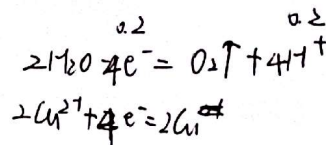 0.2 0.2
2H₂O-4e⁻=O₂↑+4H⁺
2Cu²⁺+4e⁻=2Cu